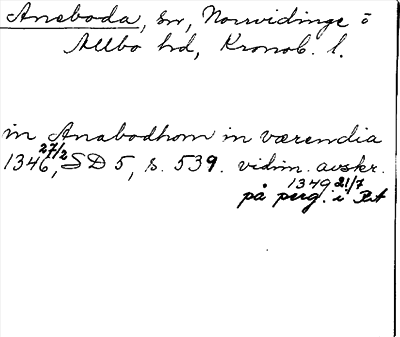 Aneboda, sn, Norrvidinge o
Allbo hd, Kronob. l.
in Anabodhom inværendia
1346 27/2, SD 5, s. 539. vidim. avskr.
1349 21/7
på perg. i